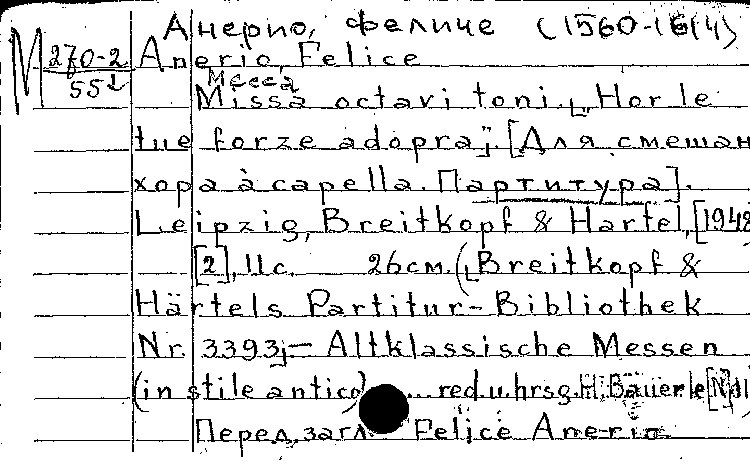 Анерио, Феличе (1560-1614)
М 270-2 Anerio, Felice
55↓ Месса
Missa octavi toni. „Hor le
tue forze adopra”. [Для смешан
хора à capella. Партитура].
Leipzig, Breitkopf & Hartel, [1948
[2], 11с. 26см. („Breitkopf &
Härtels Partitur-Bibliothek
Nr. 3393;— Altklassische Messen
(in stile antico) ... red. u. hrsg. H. Bäuerle
Перед. загл. Felice Anerio